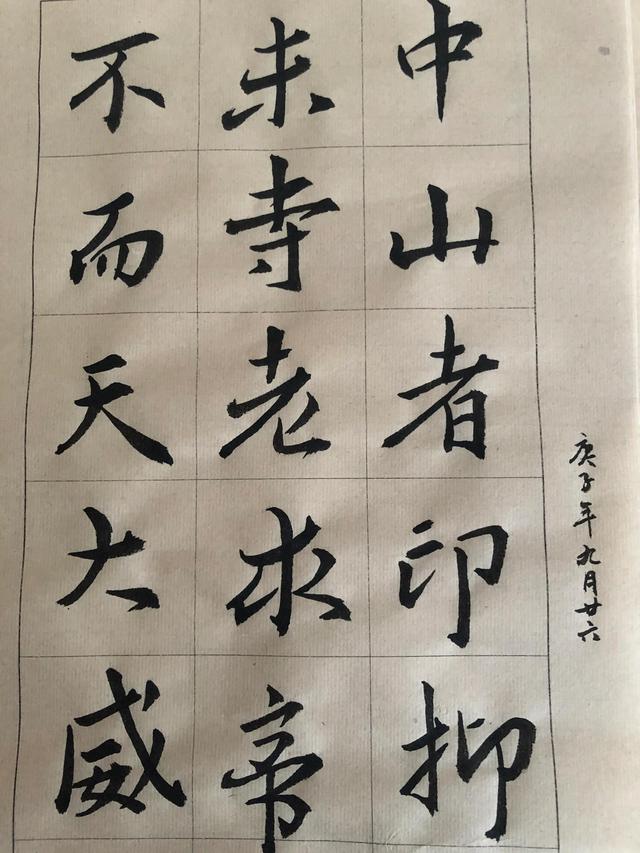 庚子年九月廿六
中山者印抑
未寺老求帝
不而天大威